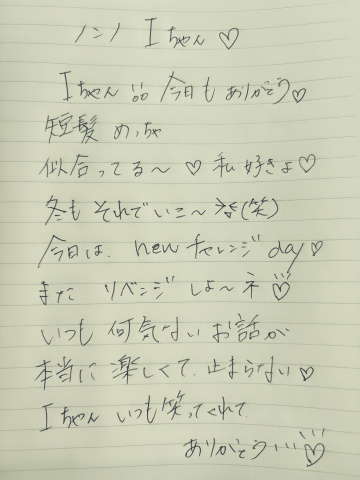 ノンノ Iちゃん♡
Iちゃん 今日も ありがとう♡
短髪 めっちゃ
似合ってる〜 ♡ 私 好きよ♡
冬も それでいこ〜 (笑)
今日は、new チャレンジ day♡
また リベンジ しよ〜ネ♡
いつも 何気ない お話が
本当に 楽しくて、止まらない♡
Iちゃん いつも笑ってくれて、
ありがとう…♡